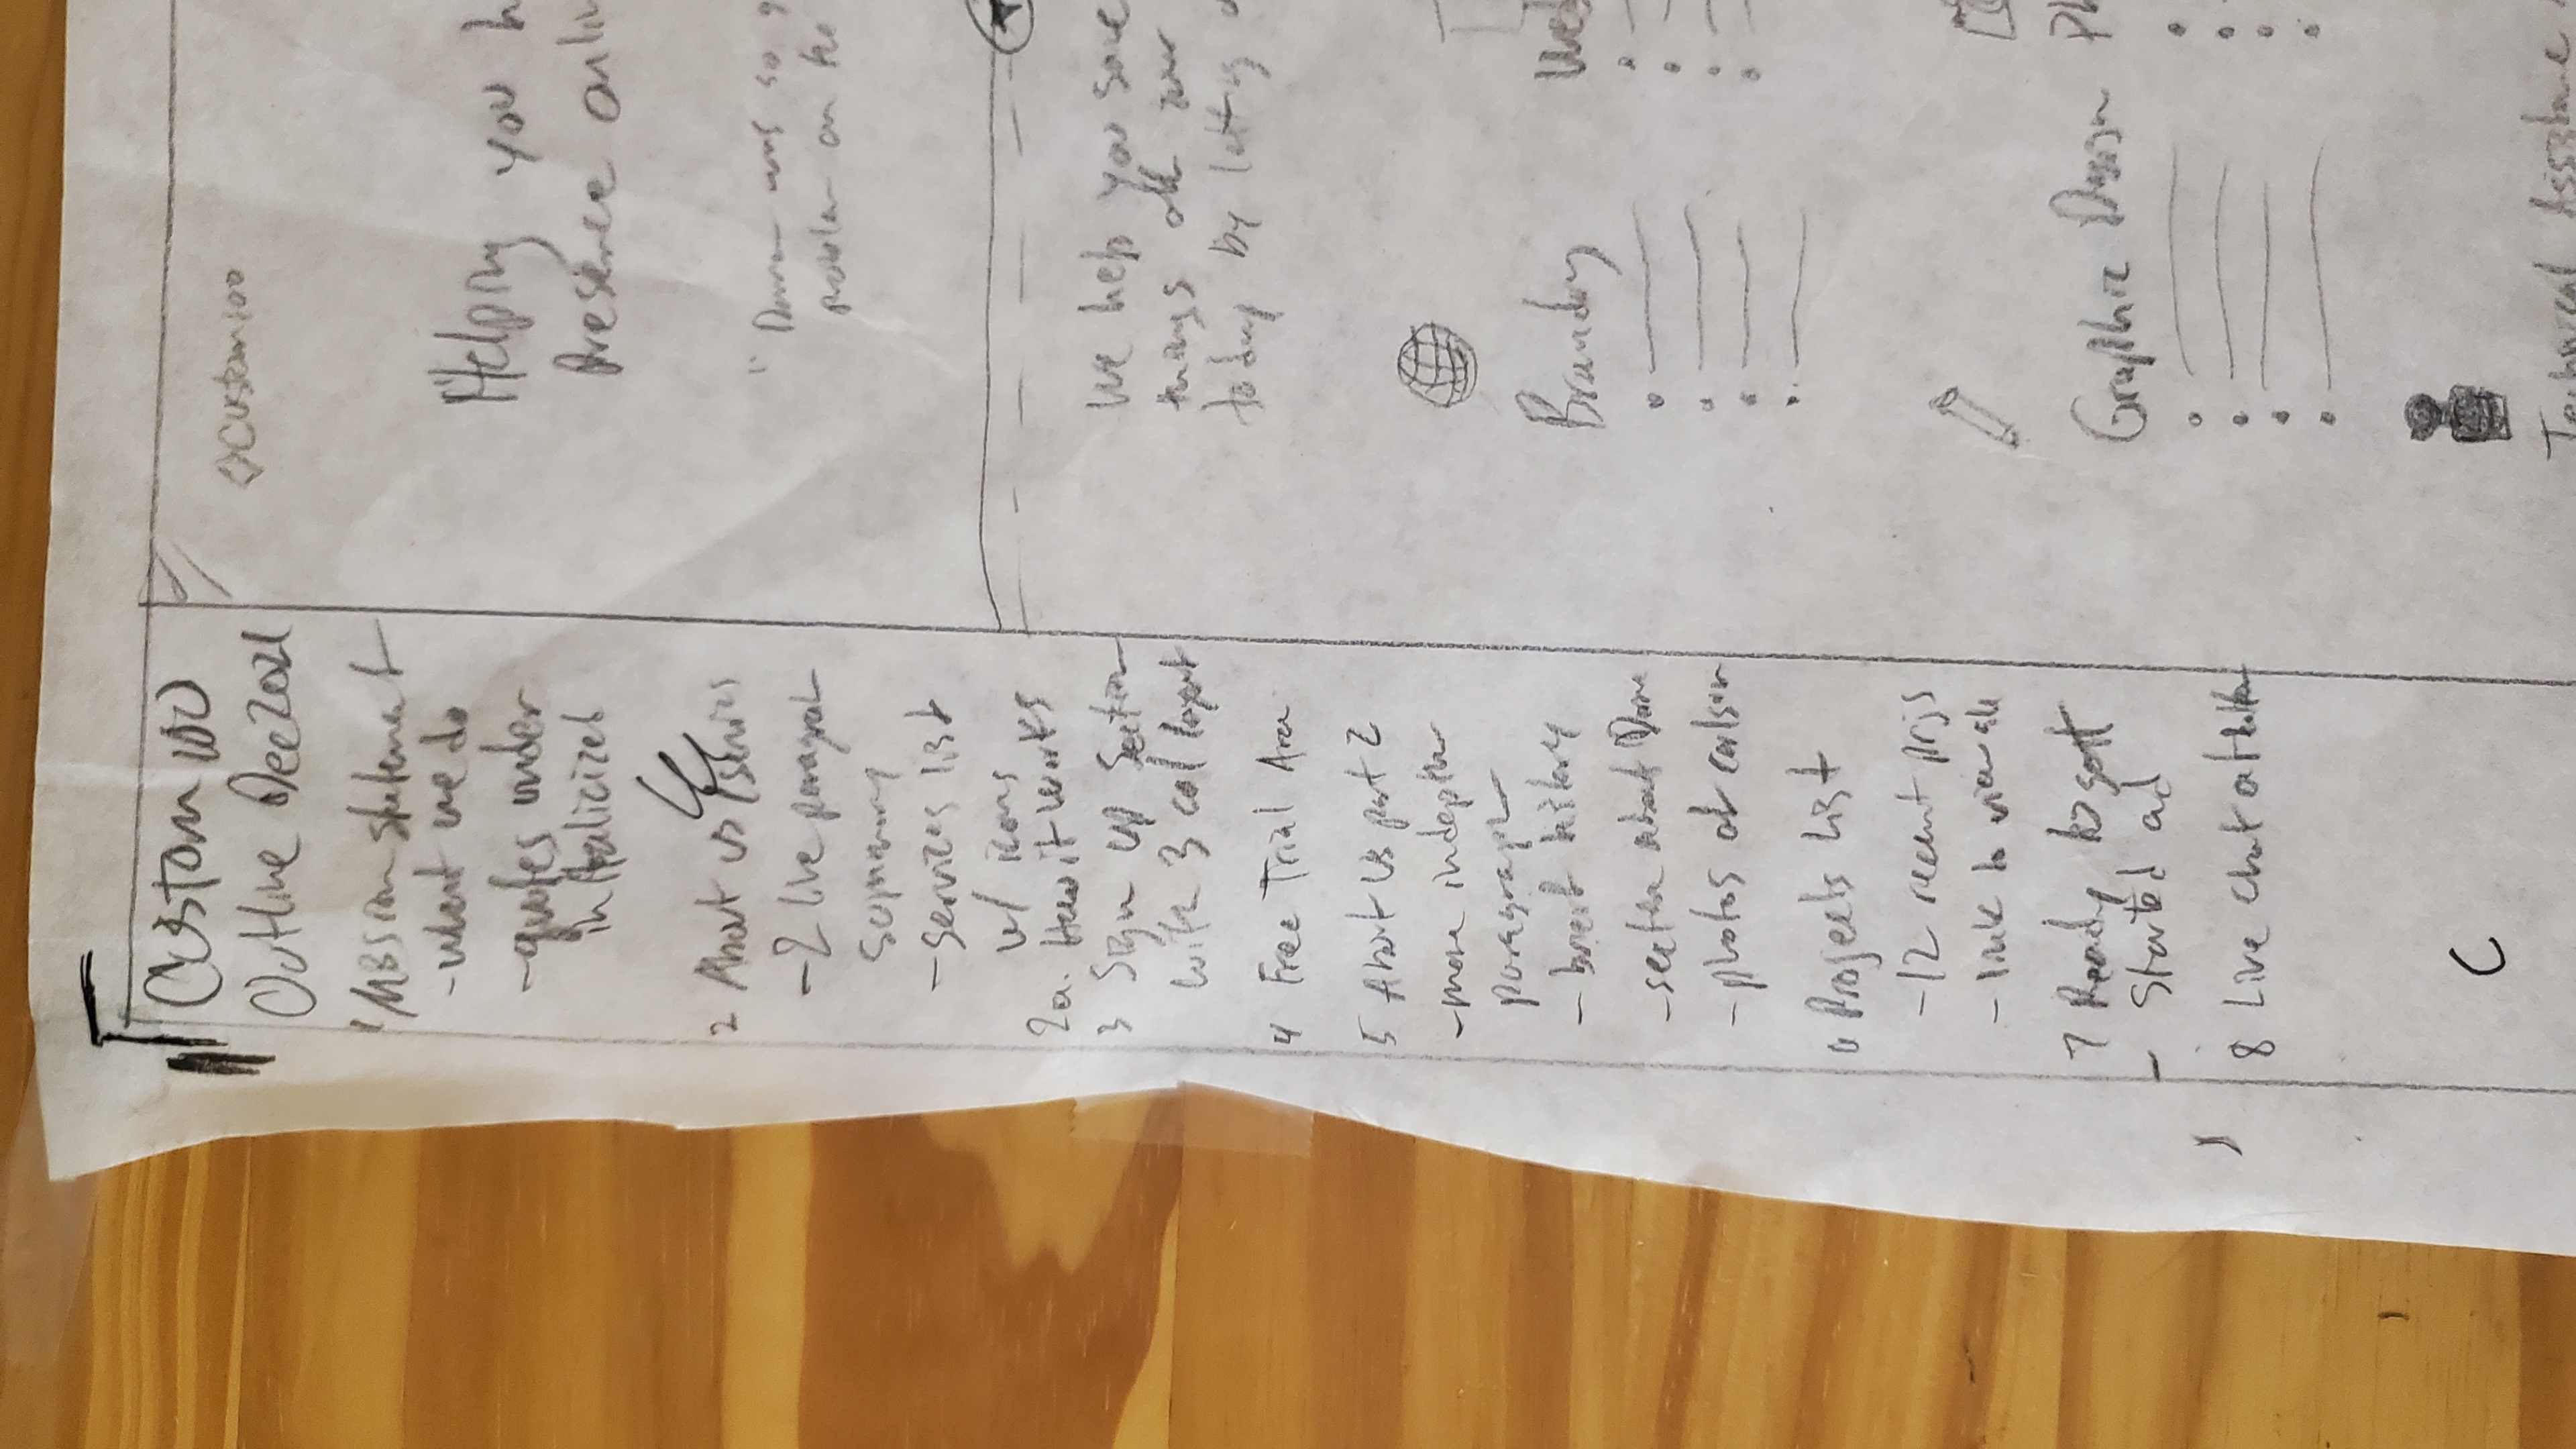 Custom100
Outline Dec 2021
1 Mission statement
- what we do
- quotes under
in italicized
2 About us
- 2 line paragrah
summary
- services list
w/ icons
2a. How it works
3 Sign up Section
with 3 col layout
4 Free Trial Area
5 About us part 2
- more indepth
paragraph
- brief history
- section about
- photos of
6 Projects List
- 12 recent projs
- link to view all
7 Ready to gett
Started ad
8 Live chat at
Custom100
Helping you h
Presence onlin
so
on the
We help you save
things
today by letting
Branding
Web
Graphic Design
Ph
Technical Assistance